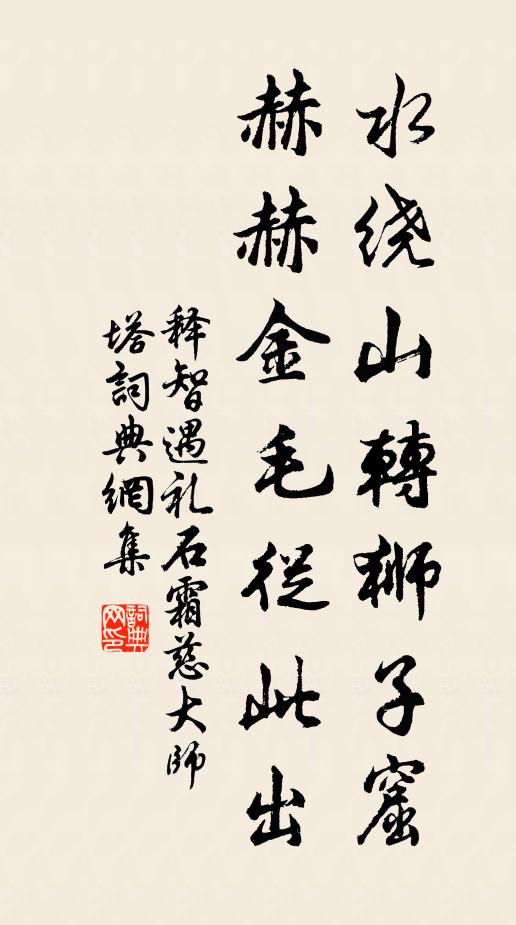 水绕山轉狮子窟
赫赫金毛從此出
释智遇礼石霜慈大师
塔詞典網集
詞典网印